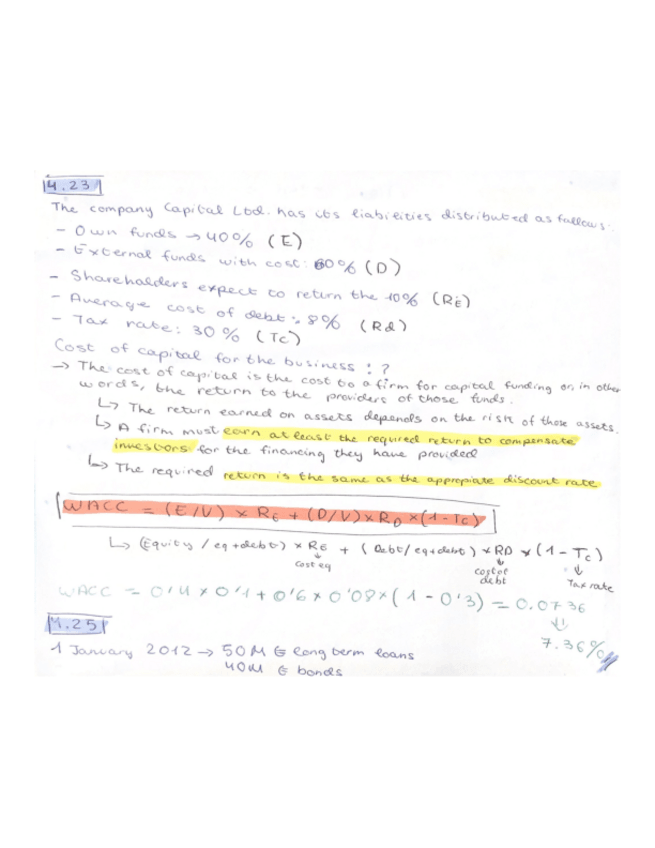 4.23
The company Capital Ltd. has its liabilities distributed as follows:
- Own funds → 40% (E)
- External funds with cost: 60% (D)
- Shareholders expect to return the 10% (RE)
- Average cost of debt: 8% (Rd)
- Tax rate: 30% (Tc)
Cost of capital for the business: ?
→ The cost of capital is the cost to a firm for capital funding or, in other
words, the return to the providers of those funds.
↳ The return earned on assets depends on the risk of those assets.
↳ A firm must earn at least the required return to compensate
investors for the financing they have provided
↳ The required return is the same as the appropiate discount rate
WACC = (E/V) x RE + (D/V) x RD x (1-Tc)
↳ (Equity / eq+debt) x RE + (Debt/eq+debt) x RD x (1-Tc)
↓ cost eq ↓ cost of debt ↓ Tax rate
WACC = 0'4 x 0'1 + 0'6 x 0'08 x (1 - 0'3) = 0.0736
⇓
7.36%
4.25
1 January 2012 → 50M € long term loans
40M € bonds